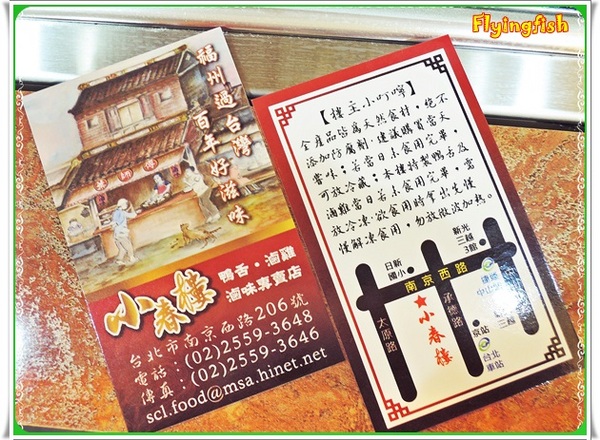 Flyingfish
福州過台灣
百年好滋味
小春樓
鴨舌・滷雞
滷味專賣店
台北市南京西路206號
電話：(02)2559-3648
傳真：(02)2559-3646
scl.food@msa.hinet.net
【樓主小叮嚀】
全產品皆為天然食材，絕不
添加防腐劑，建議購買當天
嘗味；若當日未食用完畢，
可放冷藏；本樓特製鴨舌及
滷雞當日若未食用完畢，當
放冷凍，欲食用時拿出先慢
慢解凍食用，勿放微波加熱。
日新
國小
新光
三越
3館
南京西路
捷運
中山站
太原路
★小春樓
承德路
京站
三越
台北
車站